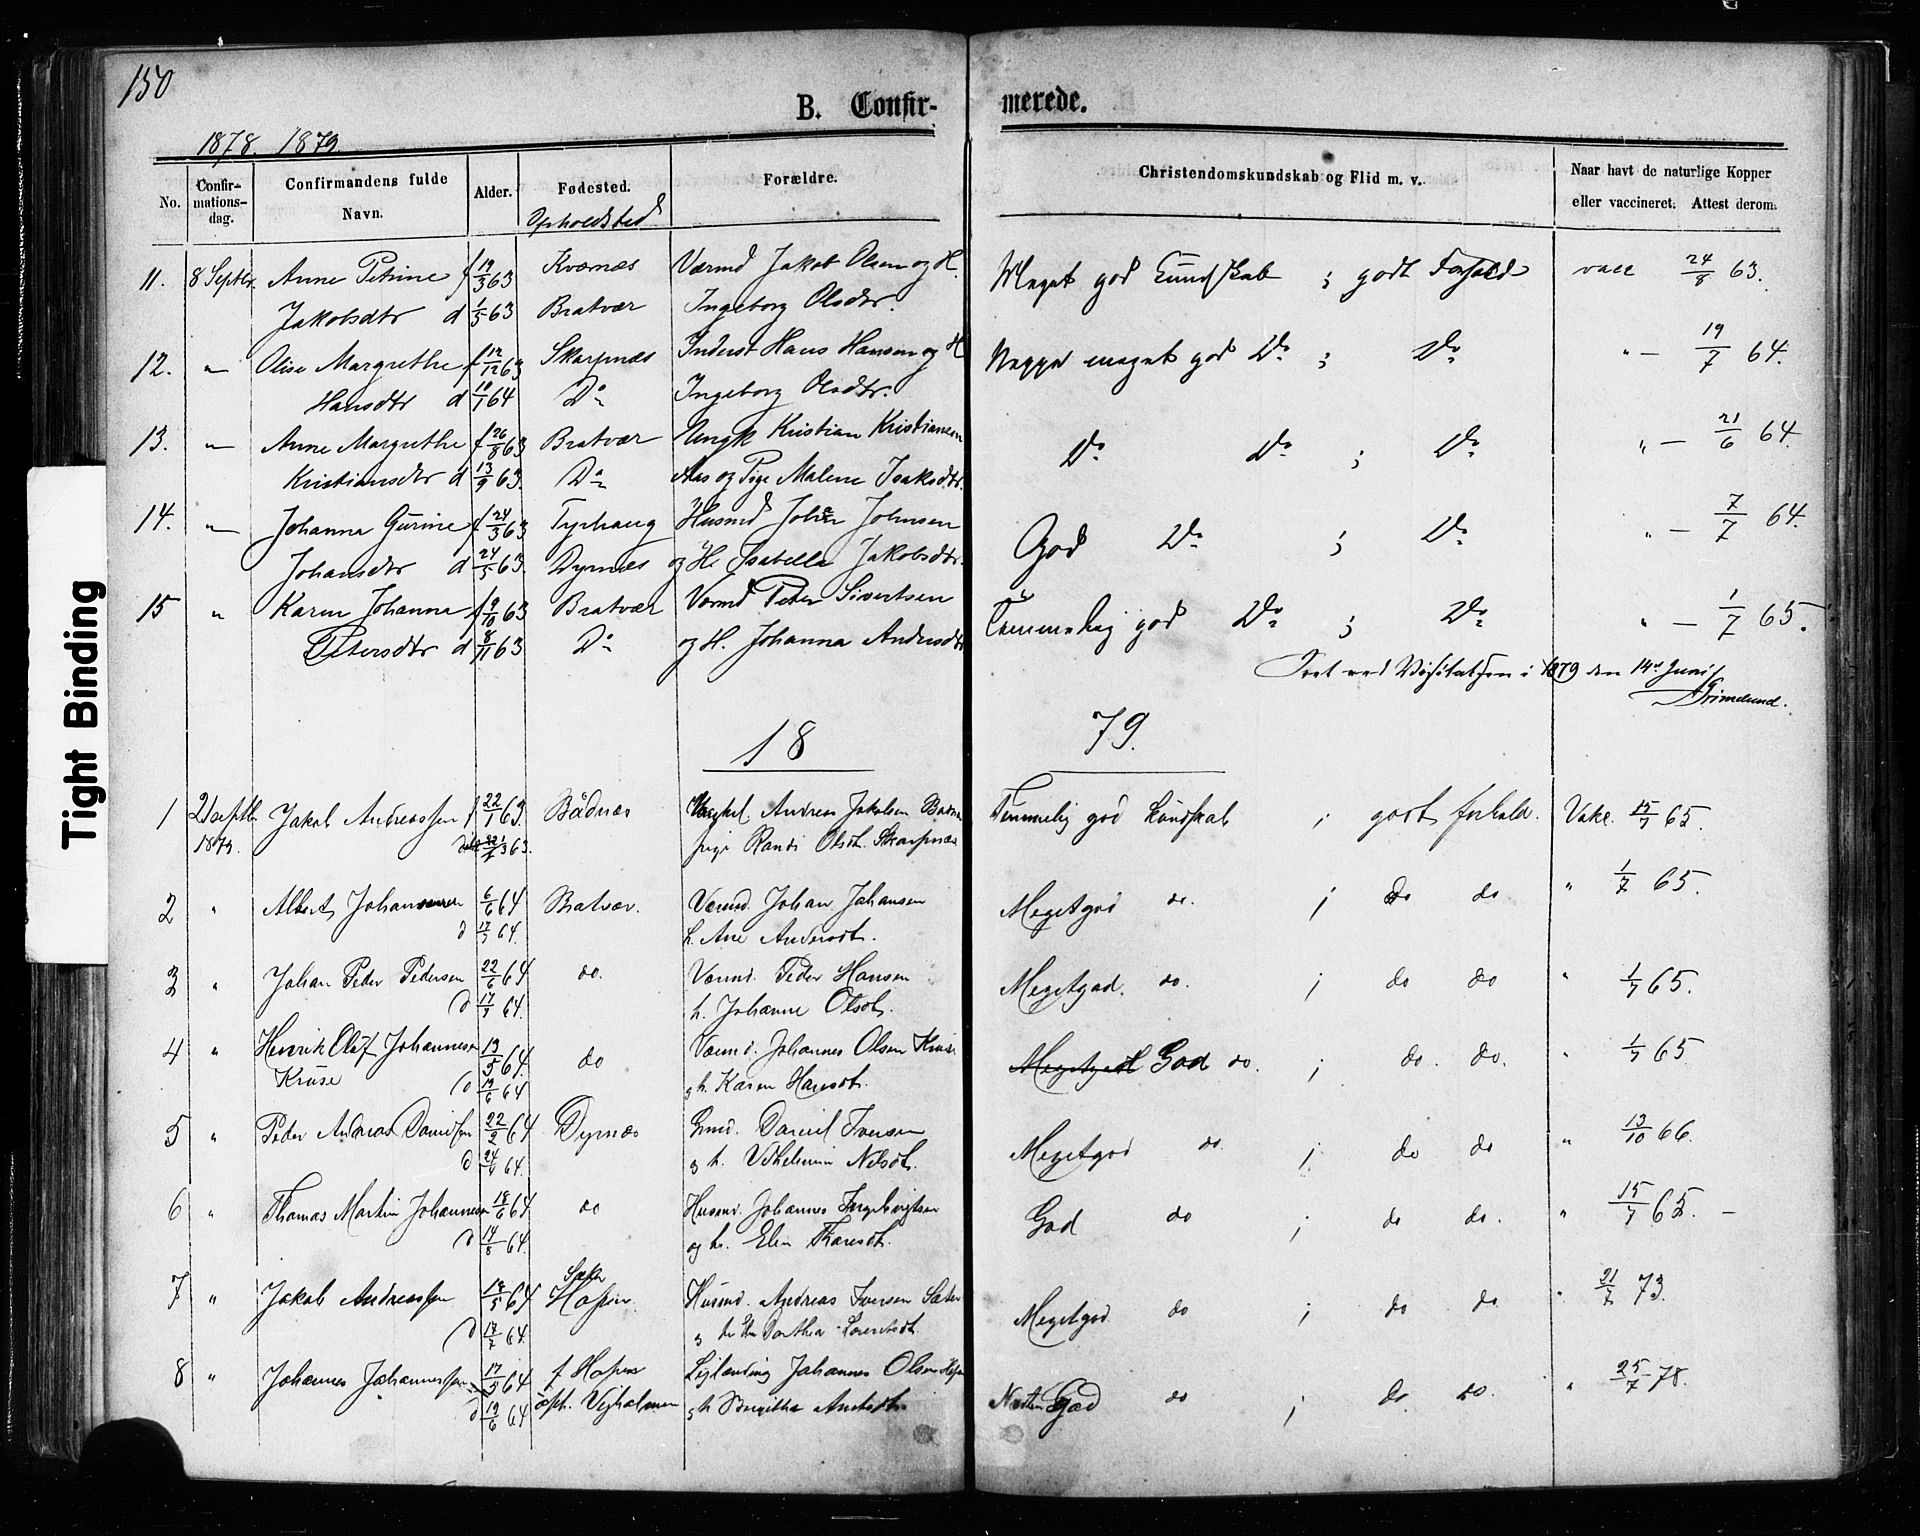 150
B. Confir-
merede.
1878. 1879
No.
Confir-
mations-
dag.
Confirmandens fulde
Navn.
Alder.
Fødested.
Opholdsted
Forældre.
Christendomskundskab og Flid m. v.
Naar havt de naturlige Kopper
eller vaccineret. Attest derom.
11. 8 Septbr. Anne Petrine f 19/3 63 Kvernæs Værmd Jakob Olsen og H. Meget god Kundskab ; godt Forhold vacc 24/8 63.
Jakobsdtr d 1/5 63 Bratvær Ingeborg Olsdtr.
12. " Olise Margrethe f 12/12 63 Skarpnæs Inderst Hans Hansen og H Neppe meget god Do ; Do " – 19/7 64.
Hansdtr d 10/1 64 Do Ingeborg Olsdtr.
13. " Anne Margrethe f 26/8 63 Bratvær Ungk Kristian Kristiansen Do Do ; Do " – 21/6 64.
Kristiansdtr d 13/9 63. Do Aas og Pige Malene Isaksdtr.
14. " Johanna Gurine f 24/3 63 Tyrhaug Husmd Johan Johnsen God Do ; Do " – 7/7 64.
Johansdtr d 24/5 63. Dyrnæs og H. Isabella Jakobsdtr.
15 " Karen Johanna f 9/10 63 Bratvær Værmd Peter Sivertsen Temmelig god Do ; Do " – 1/7 65.
Petersdtr d 8/11 63 Do og H. Johanna Andersdtr
Seet ved Visitatsen i 1879 den 14de Juni
Grimelund.
18 79.
1 21 Septbr Jakob Andreassen f 22/1 63 Bådnæs Ungkal Andreas Jakobsen Temmelig god Kundskab ; godt forhold. Vakc. 15/7 65.
1879. 63. pige Randi Olsdt. Skarpnæs
2 " Albert Johannesen 6/6 64 Bratvær. Værmd. Johan Johansen Megetgod do. ; do do " 1/7 65.
d 17/7 64. h. Ane Andersdt.
3 " Johan Peder Pedersen 22/6 64 do. Værmd. Peder Hansen Megetgod. do. ; do do " 1/7 65.
d 17/7 64. h. Johanne Olsdt.
4 " Henrik Olaf Johannesen 13/5 64. do Værmd. Johannes Olsen Kruse Megetgod God do. ; do. do. " 1/7 65
Kruse d 19/6 64 og h. Karen Hansdt.
5 " Peder Andreas Danielsen 22/2 64 Dyrnæs Gmd. Daniel Iversen Megetgod do. ; do do " 13/10 66.
d 24/4 64. og h. Vilhelmin Nilsdt.
6 " Thomas Martin Johannesen 18/6 64 do Husmd. Johannes Ingebrigtsen God do ; do do. " 15/7 65. –
d 14/8 64. og h. Elen Tharesdt.
7 " Jakob Andreassen 18/5 64 Sæter Hopen. Husmd. Andreas Iversen Sæter Megetgod do ; do do " 21/7 73.
d 17/7 64. og h. Dorthea Lorentsdt.
8 " Johannes Johannessen 17/5 64 f Hopen Leilending Johannes Olsen Hopen Næsten God do ; do. do. " 25/7 78.
d 19/6 64 oph. Vighalmen og h Birgitha Arntsdt.
Tight Binding